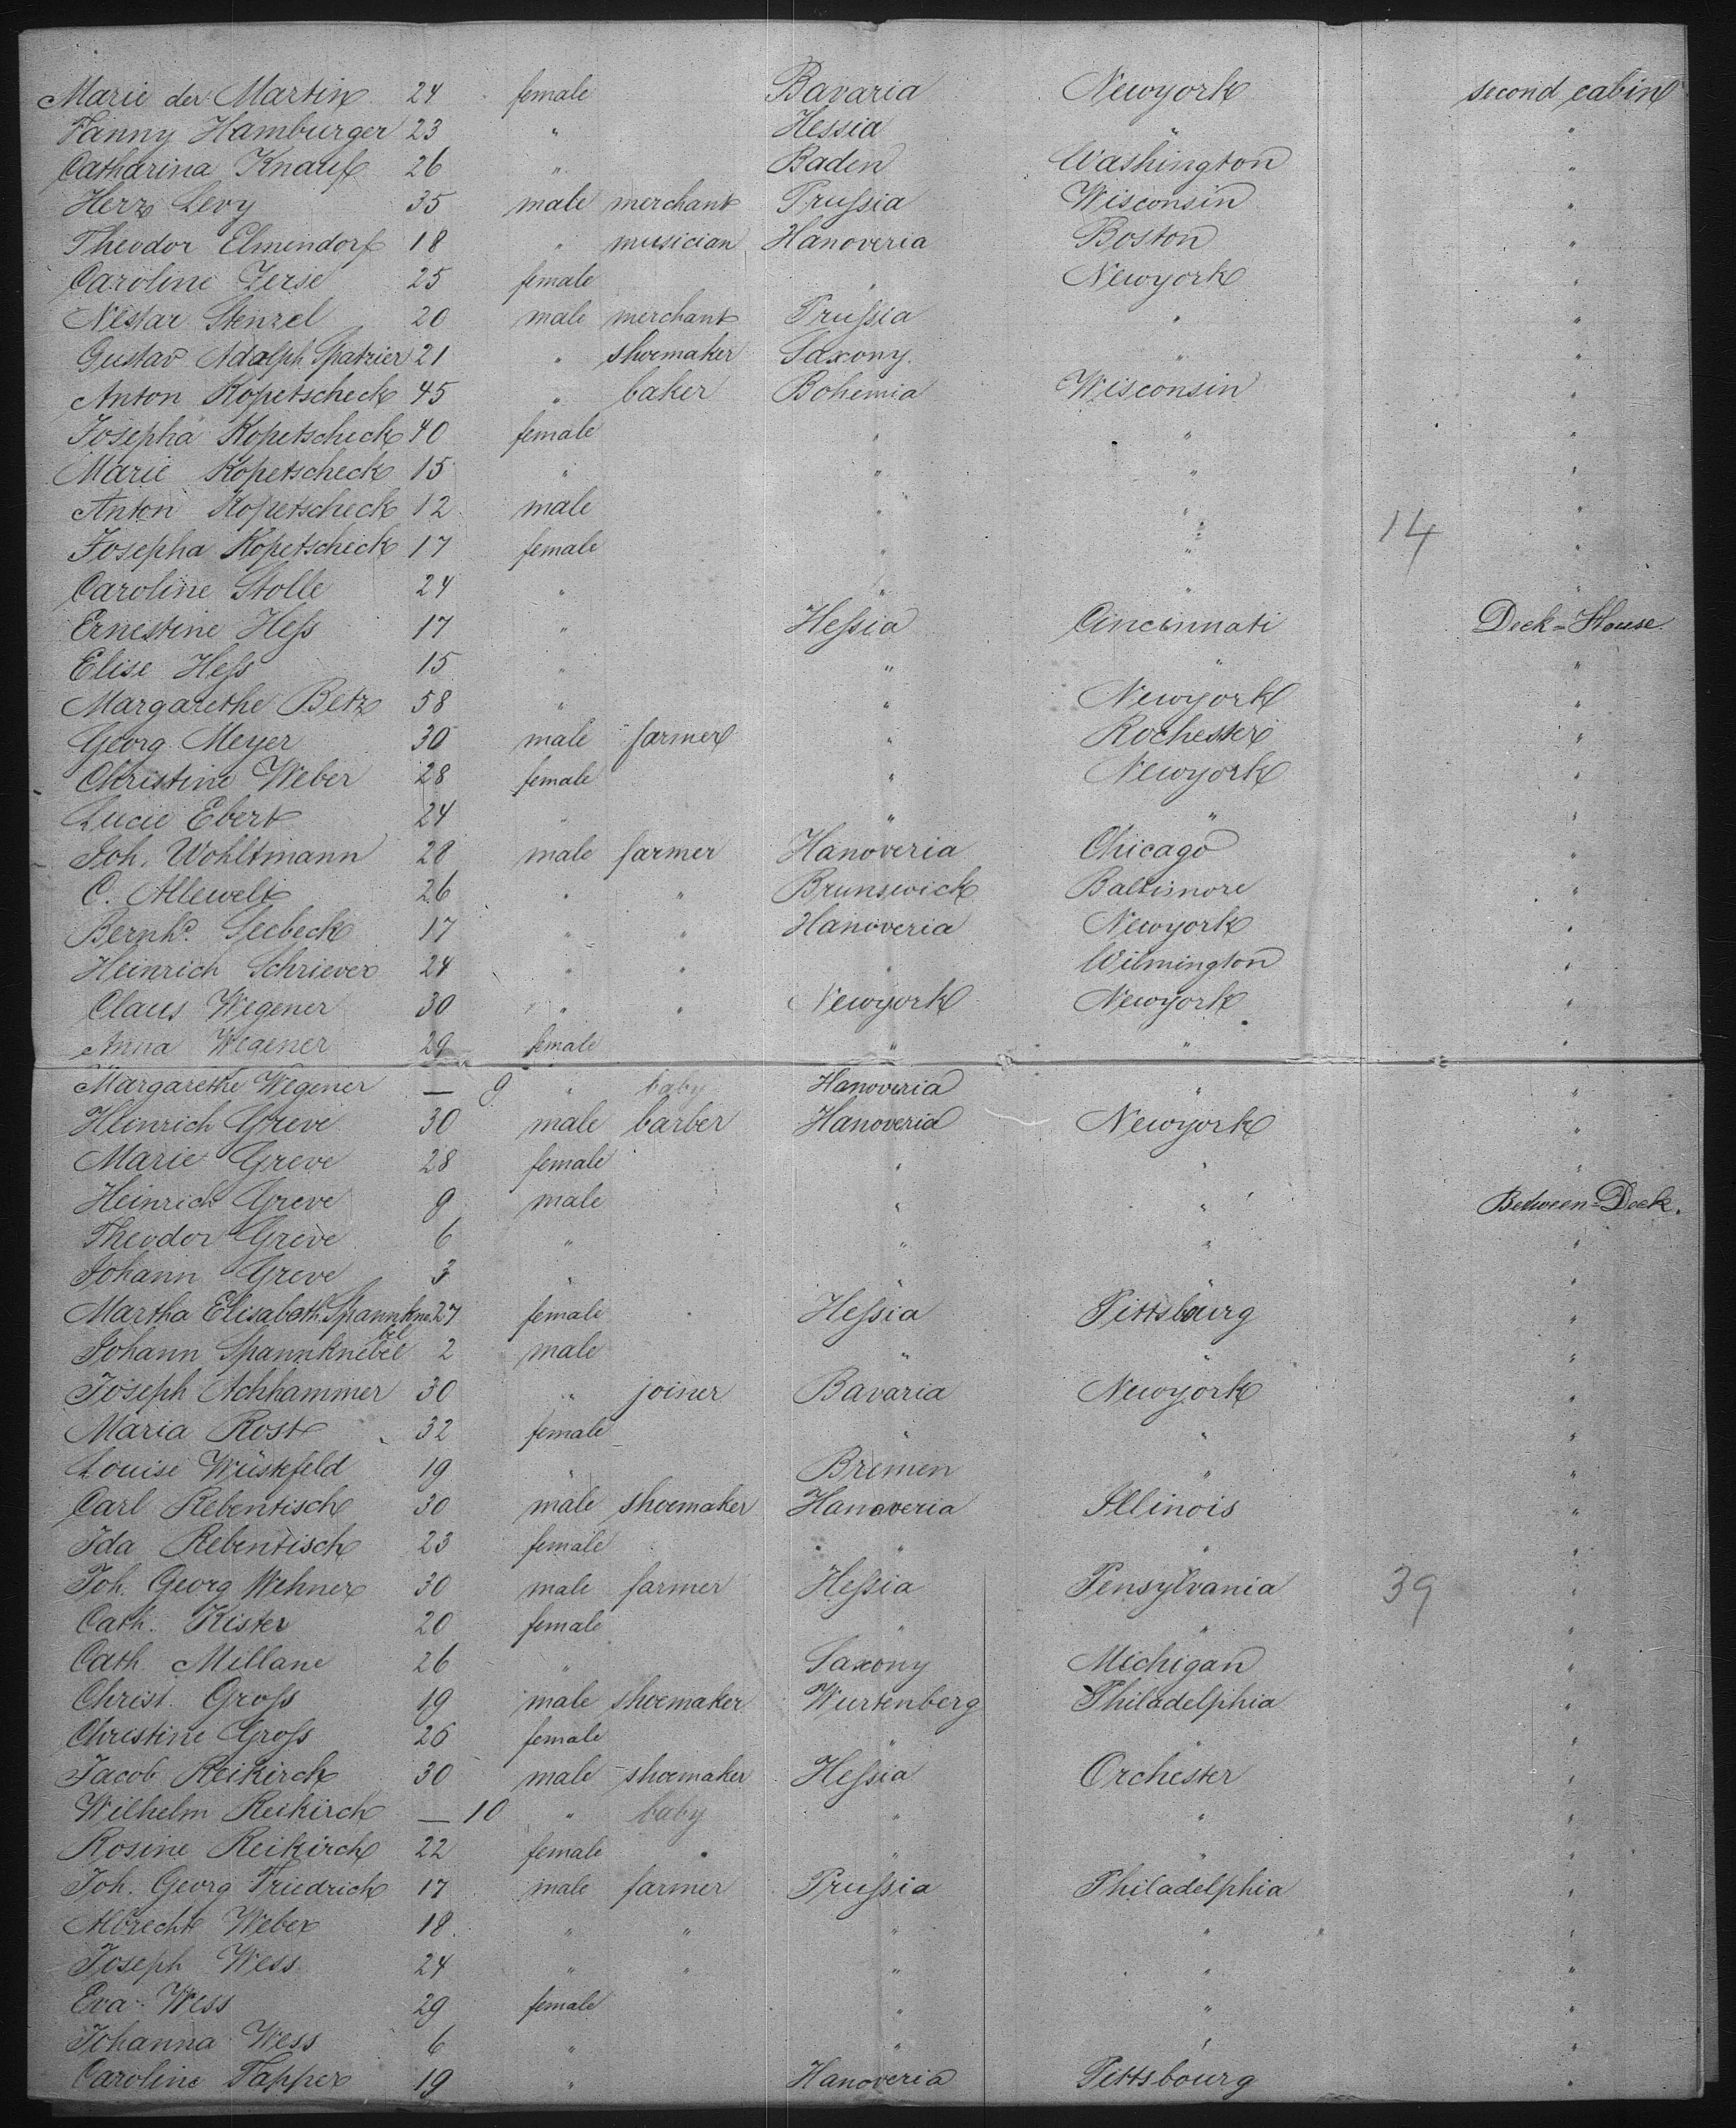 Marie der Martin 24 female Bavaria Newyork second cabin
Fanny Hamburger 23 " Hessia " "
Catharina Knauf 26 " Baden Washington "
Herz Levy 35 male merchant Prussia Wisconsin "
Theodor Elmendorf 18 " musician Hanoveria Boston "
Caroline Zerse 25 female " Newyork "
Nestar Stenzel 20 male merchant Prussia " "
Gustav Adolph Spatzier 21 " shoemaker Saxony. " "
Anton Kopetscheck 45 " baker Bohemia Wisconsin "
Josepha Kopetscheck 40 female " " "
Marie Kopetscheck 15 " " " "
Anton Kopetscheck 12 male " " "
Josepha Kopetscheck 17 female " " 14 "
Caroline Stolle 24 " " " "
Ernestine Hess 17 " Hessia Cincinnati Deck-House
Elise Hess 15 " " " "
Margarethe Betz 58 " " Newyork "
Georg Meyer 30 male farmer " Rochester "
Christine Weber 28 female " Newyork "
Lucie Ebert 24 " " " "
Joh. Wohltmann 28 male farmer Hanoveria Chicago "
C. Allewelt 26 " " Brunswick Baltimore "
Bernhd. Seebeck 17 " " Hanoveria Newyork "
Heinrich Schriever 24 " " " Wilmington "
Claus Wegener 30 " " Newyork Newyork "
Anna Wegener 29 female " " "
Margarethe Wegener — 9 " baby Hanoveria " "
Heinrich Greve 30 male barber Hanoveria Newyork "
Marie Greve 28 female " " "
Heinrich Greve 9 male " " Between-Deck.
Theodor Greve 6 " " " "
Johann Greve 3 " " " "
Martha Elisabath Spannknebel 27 female Hessia Pittsbourg "
Johann Spannknebel 2 male " " "
Joseph Achhammer 30 " joiner Bavaria Newyork "
Maria Rost 32 female " " "
Louise Wüstefeld 19 " Bremen " "
Carl Rebentisch 30 male shoemaker Hanoveria Illinois "
Ida Rebentisch 23 female " " "
Joh. Georg Wehner 30 male farmer Hessia Pensylvania 39 "
Cath. Kister 20 female " " "
Cath. Millane 26 " Saxony Michigan "
Christ. Gross 19 male shoemaker Wurtenberg Philadelphia "
Christine Gross 26 female " " "
Jacob Reikirch 30 male shoemaker Hessia Orchester "
Wilhelm Reikirch — 10 " baby " " "
Rosine Reikirch 22 female " " "
Joh. Georg Friedrich 17 male farmer Prussia Philadelphia "
Albrecht Weber 18 " " " " "
Joseph Wess 24 " " " " "
Eva Wess 29 female " " "
Johanna Wess 6 " " " "
Caroline Tapper 19 " Hanoveria Pittsbourg "